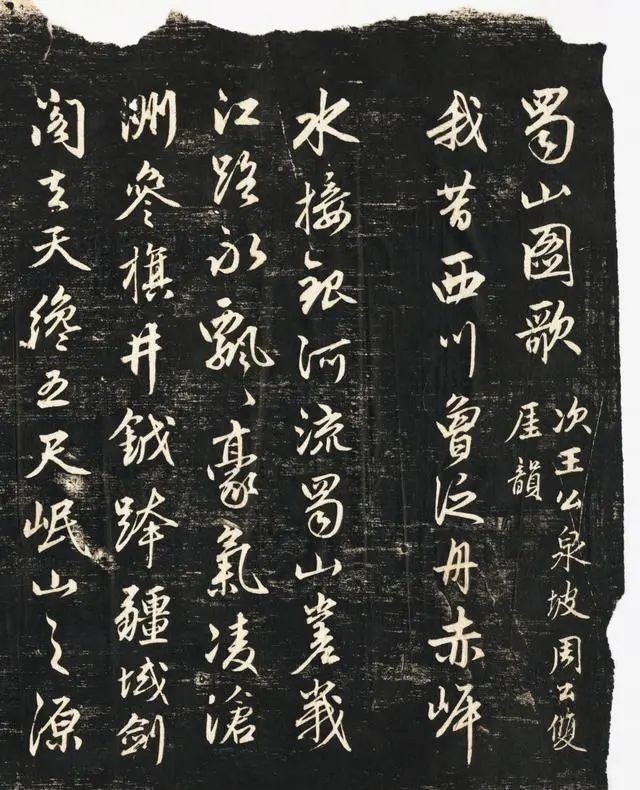 蜀山圖歌
次王公泉坡周公雙
厓韻
我昔西川曾泛舟赤岸
水接銀河流蜀山嵳峩
江路永飄〻豪氣凌滄
洲參旗井鉞跨疆域劍
閣去天纔五尺岷山之源